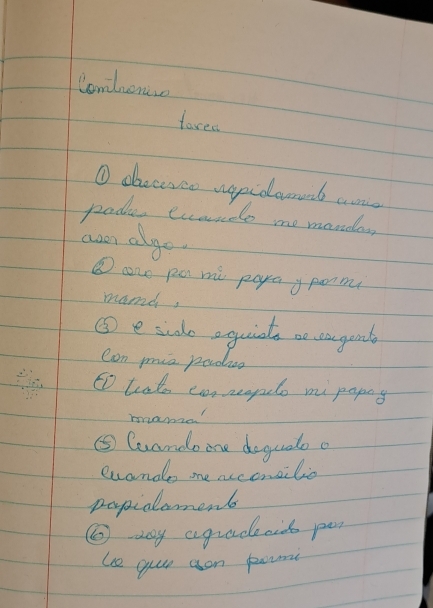 tarea
① obecesco rapidamente a mis
padres cuando me mandan
aser algo.
② oro por mi papa y por mi
mamá.
③ e sido eguista oe exgente
con mis padres
④ trato con respelo mi papa y
mamá
⑤ Cuando me degusto o
cuando me reconsilio
papidamente
⑥ soy agradecido por
lo que asen pormi